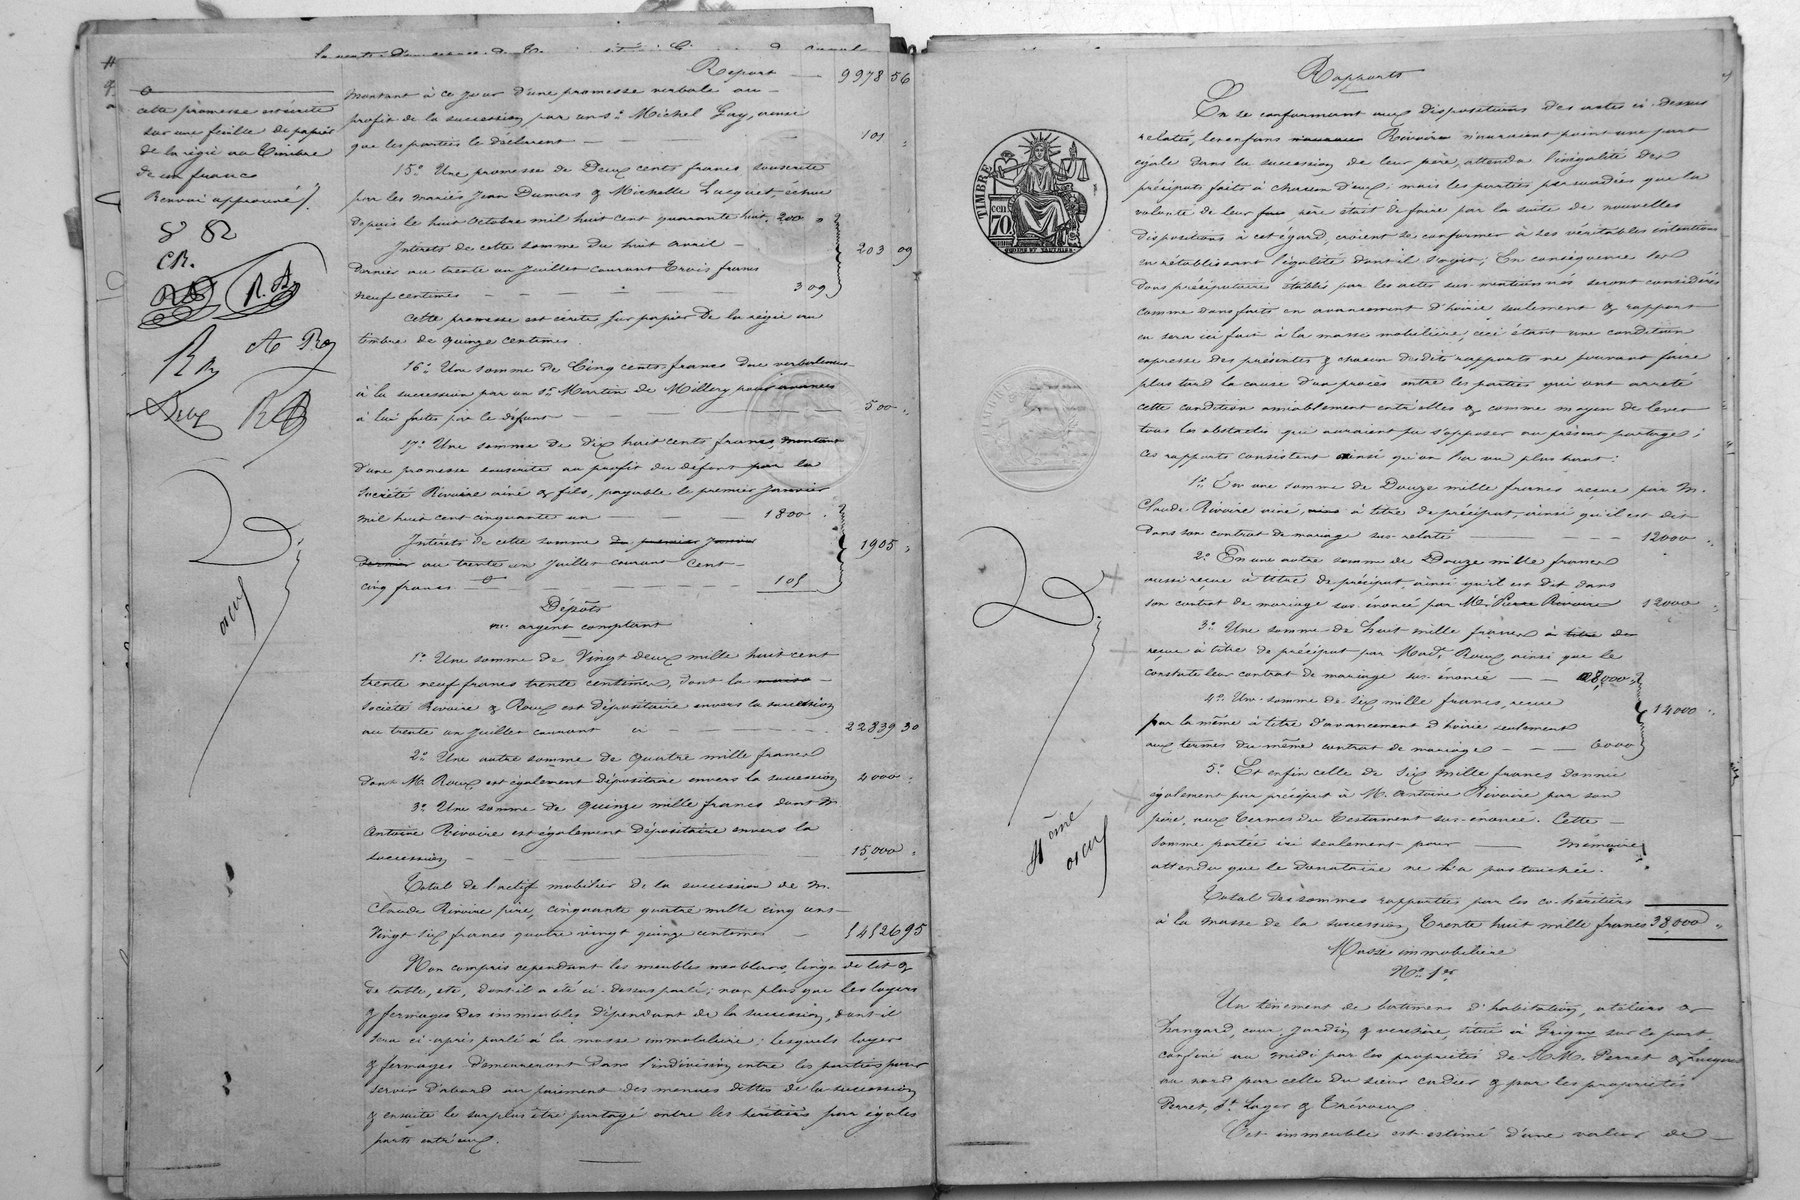 Report — 9978 56
montant à ce jour d'une promesse verbale au
profit de la succession par un sr Michel Gay, ainsi
que les parties le déclarent — 101 "
15° Une promesse de Deux cents francs souscrite
par les mariés Jean Dumas & Michelle Luquet, échue
depuis le huit octobre mil huit cent quarante huit. 200 "
Intérêts de cette somme du huit avril
dernier au trente un juillet courant trois francs
neuf centimes — 3 09
203 09
Cette promesse est écrite sur papier de la régie au
timbre de quinze centimes.
16° Une somme de Cinq cents francs due verbalement
à la succession par un sr Martin de Millery pour avances
à lui faites par le défunt — 500 "
17° Une somme de dix huit cents francs, montant
d'une promesse souscrite au profit du défunt par la
société Rivoire ainé & fils, payable le premier janvier
mil huit cent cinquante un — 1800 "
Intérêts de cette somme du premier janvier
dernier au trente un juillet courant cent
cinq francs — 105
1905 "
Dépôts
en argent comptant
1° Une somme de Vingt deux mille huit cent
trente neuf francs trente centimes, dont la maison
société Rivoire & Roux est dépositaire envers la succession
au trente un juillet courant ci — 22839 30
2° Une autre somme de quatre mille francs
dont M. Roux est également dépositaire envers la succession 4000 "
3° Une somme de quinze mille francs dont M.
Antoine Rivoire est également dépositaire envers la
succession — 15,000 "
Total de l'actif mobilier de la succession de M.
Claude Rivoire père, cinquante quatre mille cinq cent
Vingt six francs quatre vingt quinze centimes — 54526 95
Non compris cependant les meubles meublans, linge de lit &
de table, etc, dont il a été ci-dessus parlé; non plus que les loyers
& fermages des immeubles dépendant de la succession, dont il
sera ci-après parlé à la masse immobilière; lesquels loyers
& fermages demeureront dans l'indivision entre les parties pour
servir d'abord au paiement des menues dettes de la succession
& ensuite le surplus être partagé entre les héritiers par égales
parts entr'eux.
cette promesse est écrite
sur une feuille de papier
de la régie au timbre
de un franc
Renvoi approuvé
CR.
R.A.
Roux
Rapports
En se conformant aux dispositions des actes ci-dessus
relatés, les enfans Rivoire n'auraient point une part
égale dans la succession de leur père, attendu l'inégalité des
préciputs faits à chacun d'eux; mais les parties persuadées que la
volonté de leur père était de faire par la suite de nouvelles
dispositions à cet égard, croient se conformer à ses véritables intentions
en rétablissant l'égalité dont il s'agit; En conséquence les
dons préciputaires établis par les actes sus-mentionnés seront considérés
comme dons faits en avancement d'hoirie seulement & rapport
en sera ici fait à la masse mobilière; ceci étant une condition
expresse des présentes & chacun desdits rapports ne pouvant faire
plus tard la cause d'un procès entre les parties qui ont arrêté
cette condition amiablement entr'elles & comme moyen de lever
tous les obstacles qui auraient pu s'opposer au présent partage;
ces rapports consistent ainsi qu'on l'a vu plus haut:
1° En une somme de Douze mille francs reçue par M.
Claude Rivoire ainé, à titre de préciput, ainsi qu'il est dit
dans son contrat de mariage sus-relaté — 12000 "
2° En une autre somme de Douze mille francs
aussi reçue à titre de préciput, ainsi qu'il est dit dans
son contrat de mariage sus-énoncé par M. Pierre Rivoire 12000 "
3° Une somme de huit mille francs à titre de
reçue à titre de préciput par Made Roux ainsi que le
constate leur contrat de mariage sus-énoncé — 8,000 "
4° Une somme de six mille francs, reçue
par la même à titre d'avancement d'hoirie seulement
aux termes du même contrat de mariage — 6000
14000 "
5° Et enfin celle de six mille francs donnée
également par préciput à M. Antoine Rivoire par son
père, aux termes du testament sus-énoncé. Cette
somme portée ici seulement pour — Mémoire
attendu que le donataire ne l'a pas touchée.
Total des sommes rapportées par les co-héritiers
à la masse de la succession Trente huit mille francs 38,000 "
Masse immobilière
No 1er
Un tènement de batimens d'habitation, ateliers &
hangard, cour, jardin & verchère, situé à Grigny sur le port,
confiné au midi par les propriétés de M.M. Perret &
au nord par celle du sieur Cadier & par les propriétés
Perret, St Lager & Trévoux
Cet immeuble est estimé d'une valeur de
TIMBRE
cen
70.